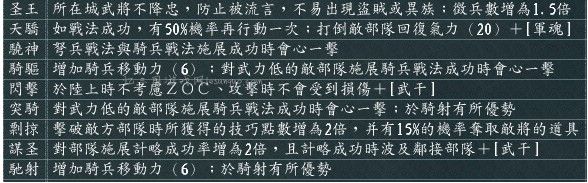 聖王 所在城武將不降忠，防止被流言，不易出現盜賊或異族；徵兵數增為1.5倍
天驕 如戰法成功，有50%機率再行動一次；打倒敵部隊回復氣力（20）＋[軍魂]
驍神 弩兵戰法與騎兵戰法施展成功時會心一擊
騎驅 增加騎兵移動力（6）；對武力低的敵部隊施展騎兵戰法成功時會心一擊
閃擊 於陸上時不考慮ZOC、攻擊時不會受到損傷＋[武干]
突騎 對武力低的敵部隊施展騎兵戰法成功時會心一擊；於騎射有所優勢
剽掠 擊破敵方部隊時所獲得的技巧點數增為2倍，並有15%的機率奪取敵將的道具
謀圣 對部隊施展計略成功率增為2倍，且計略成功時波及鄰接部隊＋[武干]
馳射 增加騎兵移動力（6）；於騎射有所優勢